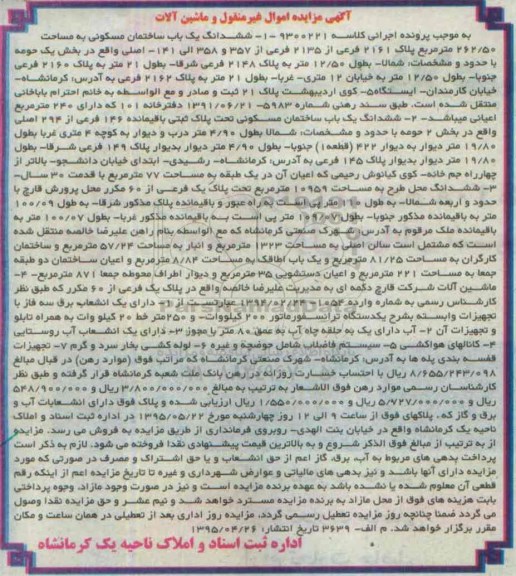 آگهی مزایده اموال غیرمنقول و ماشین آلات
به موجب پرونده اجرائی کلاسه ۹۳۰۰۲۲۱ -۱- ششدانگ یک باب ساختمان مسکونی به مساحت
۲۶۲/۵۰ مترمربع پلاک ۲۱۶۱ فرعی از ۲۱۳۵ فرعی از ۳۵۷ و ۳۵۸ الی ۱۴۱- اصلی واقع در بخش یک حومه
با حدود و مشخصات: شمالا- بطول ۱۲/۵۰ متر به پلاک ۲۱۴۸ فرعی شرقا- بطول ۲۱ متر به پلاک ۲۱۶۰ فرعی
جنوبا- بطول ۱۲/۵۰ متر به خیابان ۱۲ متری- غربا- بطول ۲۱ متر به پلاک ۲۱۶۲ فرعی به آدرس: کرمانشاه-
خیابان کارمندان- ایستگاه۵- کوی اردیبهشت پلاک ۲۱ ثبت و صادر و مع الواسطه به خانم احترام باباخانی
منتقل شده است. طبق سند رهنی شماره ۵۹۸۳- ۱۳۹۱/۰۶/۲۱ دفترخانه ۱۰۱ که دارای ۲۴۰ مترمربع
اعیانی میباشد- ۲- ششدانگ یک باب ساختمان مسکونی تحت پلاک ثبتی باقیمانده ۱۴۶ فرعی از ۲۹۴ اصلی
واقع در بخش ۲ حومه با حدود و مشخصات: شمالا بطول ۴/۹۰ متر درب و دیوار به کوچه ۴ متری غربا بطول
۱۹/۸۰ متر دیوار به دیوار ۴۲۲ (قطعه۱) جنوبا- بطول ۴/۹۰ متر دیوار بدیوار پلاک ۱۴۹ فرعی شرقا- بطول
۱۹/۸۰ متر دیوار بدیوار پلاک ۱۴۵ فرعی به آدرس: کرمانشاه- رشیدی- ابتدای خیابان دانشجو- بالاتر از
چهارراه جم خانه- کوی کیانوش رحیمی که اعیان آن در یک طبقه به مساحت ۷۷ مترمربع با قدمت ۳۰ سال-
۳- ششدانگ محل طرح به مساحت ۱۰۹۵۹ مترمربع تحت پلاک یک فرعی از ۶۰ مکرر محل پرورش قارچ با
حدود و اربعه شمالا- به طول متر اول به راه عبور و باقیمانده پلاک مذکور شرقا- به طول ۱۰۰/۰۹
متر به باقیمانده مذکور جنوبا- بطول متر پی است به باقیمانده مذکور غربا- بطول ۱۰۰/۰۷ متر به
باقیمانده ملک مرقوم به آدرس: شهرک صنعتی کرمانشاه که مع الواسطه بنام راهن علیرضا خالصه منتقل شده
است که مشتمل است سالن اصلی به مساحت ۱۳۲۳ مترمربع و انبار به مساحت ۵۷/۲۴ مترمربع و ساختمان
کارگران به مساحت ۸۱/۲۵ مترمربع و یک باب اطاقک به مساحت ۸/۸۴ مترمربع و اعیان ساختمان دو طبقه
جمعا به مساحت ۲۲۱ مترمربع و اعیان دستشویی ۳۵ مترمربع و دیوار اطراف محوطه جمعا ۸۷۱ مترمربع- ۴-
ماشین آلات شرکت قارچ دکمه ای به مدیریت علیرضا خالصه واقع در پلاک یک فرعی از ۶۰ مکرر که طبق نظر
کارشناس رسمی به شماره وارده عبارتست از ۱- دارای یک انشعاب برق سه فاز با
تجهیزات وابسته بشرح یکدستگاه ترانسفورماتور ۲۰۰ کیلووات- و ۲۵۰متر خط ۲۰ کیلو وات به همراه تابلو
و تجهیزات آن ۲- آب دارای یک به حلقه چاه آب به عمق ۸۰ متر با مجوز ۳- دارای یک انشعاب آب روستایی
۴- کانالهای هواکشی ۵- سیستم فاضلاب شامل حوضچه و غیره ۶- لوله کشی بخار سرد و گرم ۷- تجهیزات
قفسه بندی پله ها به آدرس: کرمانشاه- شهرک صنعتی کرمانشاه که مراتب فوق (موارد رهن) در قبال مبالغ
۸/۶۵۵/۲۴۳/۰۹۸ ریال با احتساب خسارت روزانه در رهن بانک ملت شعبه کرمانشاه قرار گرفته و طبق نظر
کارشناسان رسمی موارد رهن فوق الاشعار به ترتیب به مبالغ ۳/۸۰۰/۰۰۰/۰۰۰ ریال و ۵۴۸/۹۰۰/۰۰۰
ریال و ۵/۹۲۷/۰۰۰/۰۰۰ و ۱/۵۵۰/۰۰۰/۰۰۰ ریال ارزیابی شده و پلاک فوق دارای انشعابات آب و
برق و گاز که. پلاکهای فوق از ساعت ۹ الی ۱۲ روز چهارشنبه مورخ ۱۳۹۵/۰۵/۲۲ در اداره ثبت اسناد و املاک
ناحیه یک کرمانشاه واقع در خیابان بنت الهدی- روبروی فرمانداری از طریق مزایده به فروش می رسد. مزایده
از به ترتیب از مبالغ فوق الذکر شروع و به بالاترین قیمت پیشنهادی نقدا فروخته می شود. لازم به ذکر است
پرداخت بدهی های مربوط به آب، برق، گاز اعم از حق انشعاب و یا حق اشتراک و مصرف در صورتی که مورد
مزایده دارای آنها باشد و نیز بدهی های مالیاتی و عوارض شهرداری و غیره تا تاریخ مزایده اعم از اینکه رقم
قطعی آن معلوم شده یا نشده باشد به عهده برنده مزایده است و نیز در صورت وجود مازاد، وجوه پرداختی
بابت هزینه های فوق از محل مازاد به برنده مزایده مسترد خواهد شد و نیم عشر و حق مزایده نقدا وصول
می گردد ضمنا چنانچه روز مزایده تعطیل رسمی گردد، مزایده روز اداری بعد از تعطیلی در همان ساعت و مکان
مقرر برگزار خواهد شد. م الف- ۳۶۳۹ تاریخ انتشار: ۱۳۹۵/۰۴/۲۶
اداره ثبت اسناد و املاک ناحیه یک کرمانشاه